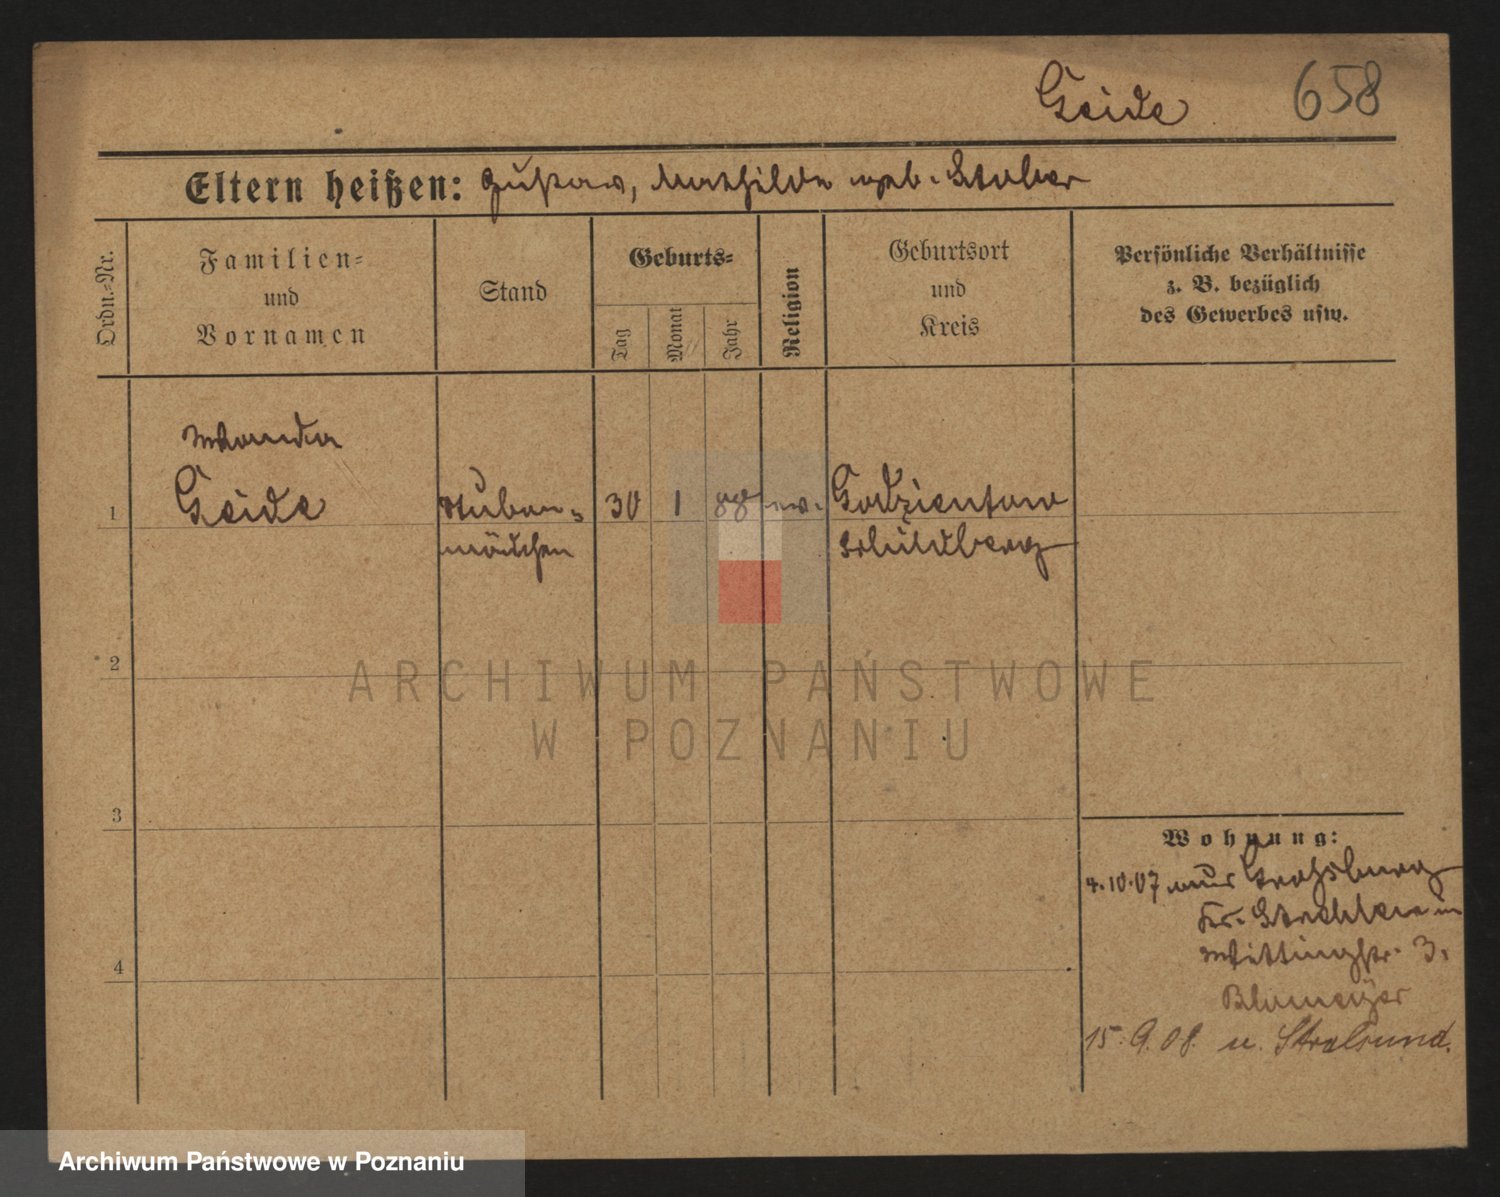 Geide 658
Eltern heißen: Gustav, Mathilde geb. Stober
Ordn.-Nr.
Familien-
und
Vornamen
Stand
Geburts-
Tag
Monat
Jahr
Religion
Geburtsort
und
Kreis
Persönliche Verhältnisse
z. B. bezüglich
des Gewerbes usw.
Wanda
1 Geide Stuben- 30 1 88 ev. Godzientow
mädchen Schildberg
2
ARCHIWUM PAŃSTWOWE
W POZNANIU
3
Wohnung:
4.10.07 aus
Kr. Strehlen in
4 3.
Blumeyer
15.9.08. n. Stralsund.
Archiwum Państwowe w Poznaniu